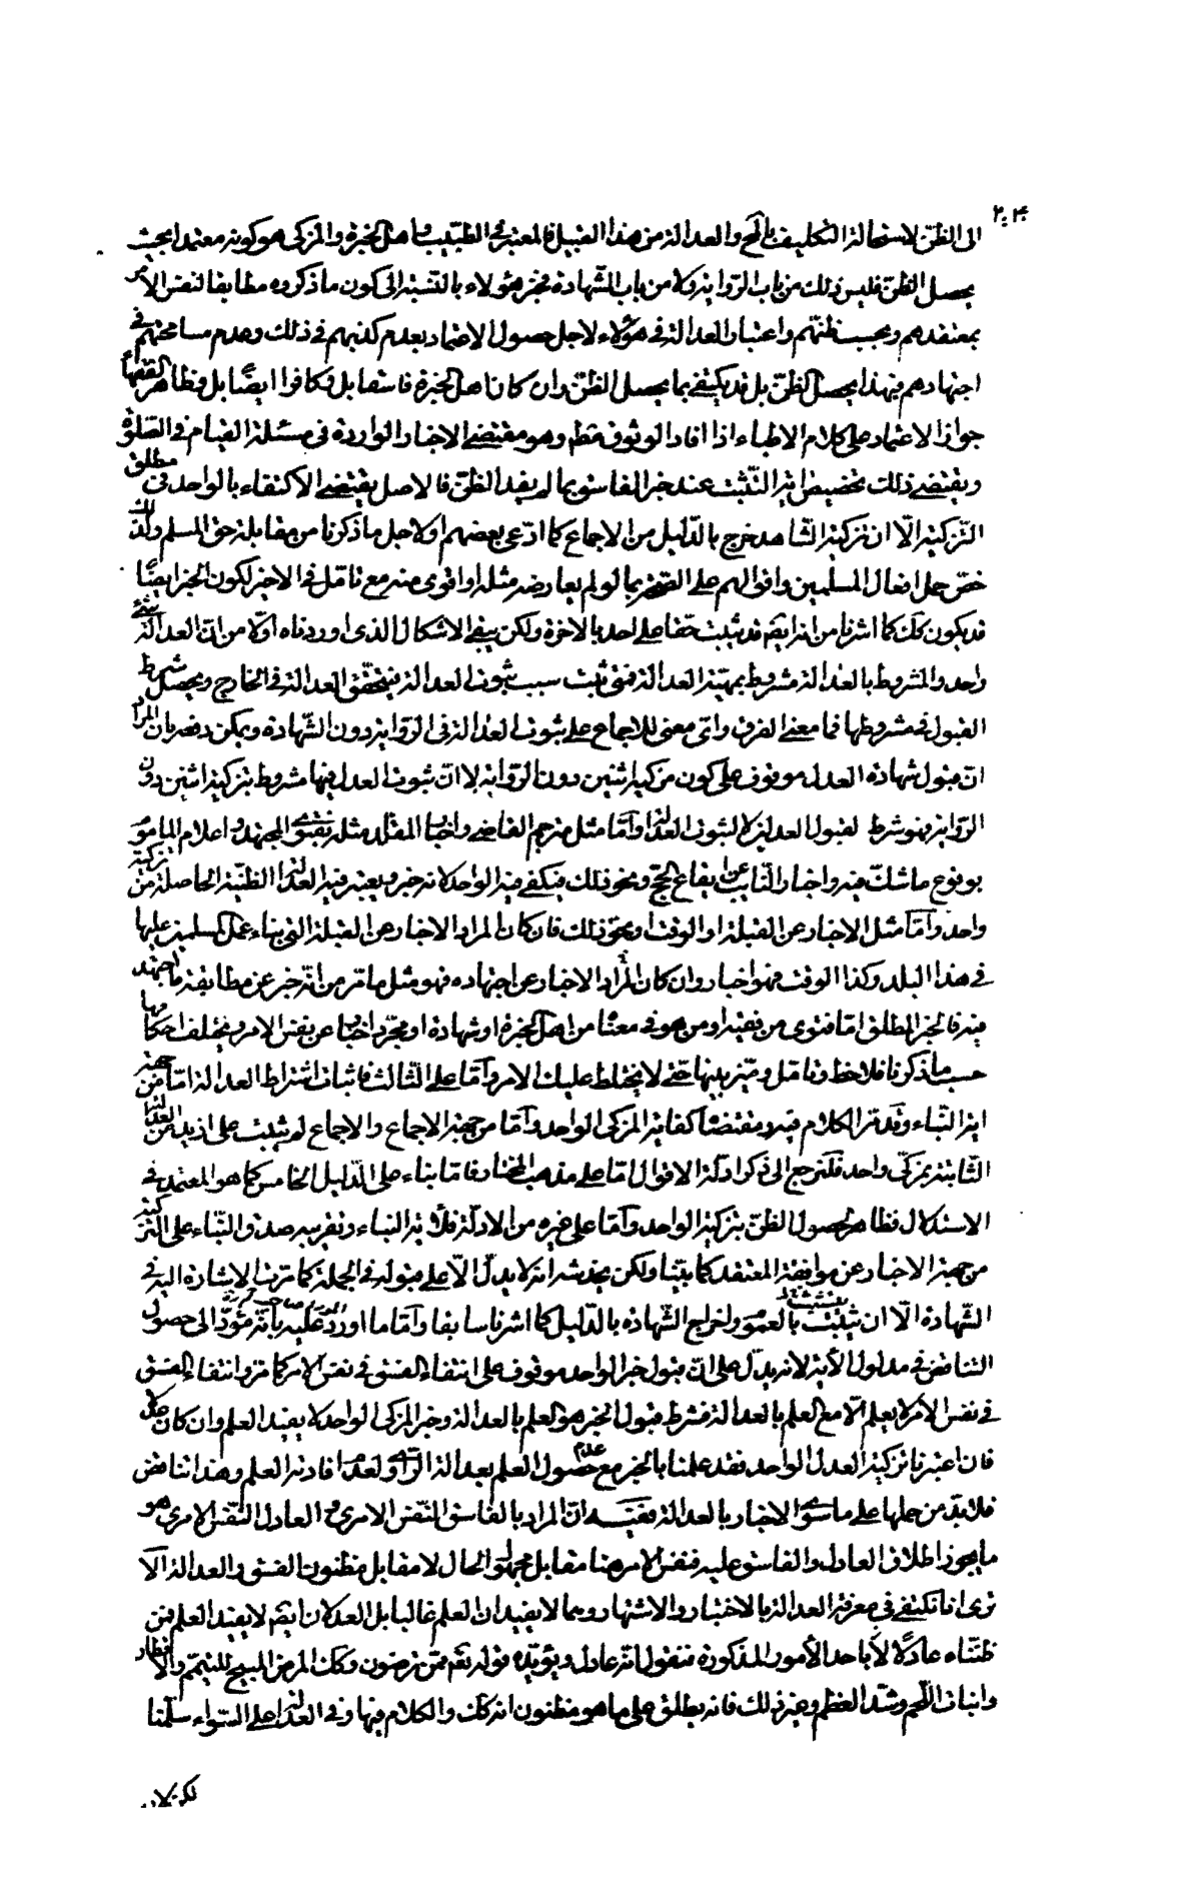 ٢٠٣
الى الظن لاستحالة التكليف بالمحال والعدالة من هذا القبيل فالمعتبر في الطبيب واهل الخبرة والمزكى هو كونه معتمدا بحيث
يحصل الظن فليس ذلك من باب الرواية ولا من باب الشهادة فخبر هؤلاء بالنسبة الى كون ما ذكروه مطابقا لنفس الأمر
بمعتقدهم وبحسب ظنهم واعتبار العدالة في هؤلاء لاجل حصول الاعتماد بعدم كذبهم في ذلك وعدم مسامحتهم في
اجتهادهم فبهذا يحصل الظن بل قد يكتفى بما يحصل الظن وان كان اهل الخبرة فاسقا بل وكافرا ايضًا بل وظاهر الفقهاء
جواز الاعتماد على كلام الاطباء اذا افاد الوثوق مطم وهو مقتضى الاخبار الواردة في مسئلة القيام في الصلوة
ويقتضى ذلك تخصيص اية التثبت عند خبر الفاسق بما لم يفد الظن فالاصل يقتضى الاكتفاء بالواحد فى مطلق
التزكية الّا ان تزكية الشاهد خرج بالدليل من الاجماع كما ادعى بعضهم اولاجل ما ذكرنا من مقابلة حق المسلم ولذلك
خص حمل افعال المسلمين واقوالهم على الصحة بما لو لم يعارضه مثله او اقوى منه مع تامل في الاخير لكون الخبر ايضًا
قد يكون كك كما اشرنا من انه ايضم قد يثبت حقا على احد بالاخرة ولكن يبقى الاشكال الذى اوردناه اولًا من ان العدالة شئ
واحد والمشروط بالعدالة مشروط بمهية العدالة فمتى ثبت سبب ثبوت العدالة يتحقق العدالة في الخارج ويحصل شرط
القبول في مشروطها فما معنى الفرق واى معنى للاجماع على ثبوت العدالة فى الرواية دون الشهادة ويمكن دفعه بان المراد
ان قبول شهادة العدل موقوف على كون مزكيه اثنين دون الرواية لا ان ثبوت العدل فيها مشروط بتزكية اثنين دون
الرواية فهو شرط لقبول العدل لا لثبوت العدالة واما مثل مترجم القاضى واخبار المقلد مثله بفتوى المجتهد واعلام الماموم
بوقوع ما شك فيه واخبار النايب عن ايقاع الحج ونحو ذلك فيكفى فيه الواحد لانه خبر ويعتبر فيه العدالة الظنية الحاصلة من تزكية
واحد واما مثل الاخبار عن القبلة او الوقت ونحو ذلك فان كان المراد الاخبار عن القبلة التي بناء عمل المسلمين عليها
في هذا البلد وكذا الوقت فهو اخبار وان كان المراد الاخبار عن اجتهاده فهو مثل ما مر من انه خبر عن مطابقة ما اجتهد
فيه فالخبر المطلق اما فتوى من فقيه او من هو في معناه من اهل الخبرة او شهادة او مجرد اخبار عن نفس الامر ويختلف احكامها
حسب ما ذكرنا فلاحظ وتامل وميز بينها حتى لا يختلط عليك الامر واما على الثالث فاثبات اشتراط العدالة اما من جهة
اية النباء وقد مر الكلام فيه ومقتضاه كفاية المزكى الواحد واما من جهة الاجماع والاجماع لم يثبت على ازيد من العدالة
الثابتة بمزكى واحد فلنرجع الى ذكر ادلة الاقوال اما على مذهب المختار فاما بناء على الدليل الخامس كما هو المعتمد في
الاستدلال فظاهر لحصول الظن بتزكية الواحد واما على غيره من الادلة فلاية النباء وتقريبه صدق النباء على التزكية
من جهة الاخبار عن موافقة المعتقد كما بينا ولكن يخدشه انه لا يدل الا على قبوله في الجملة كما مرت الاشارة اليه في
الشهادة الا ان يتشبث بالعموم واخراج الشهادة بالدليل كما اشرنا سابقا واما ما اورد عليه بانه مؤد الى حصول
التناقض في مدلول الآية لانه يدل على ان قبول خبر الواحد موقوف على انتفاء الفسق في نفس الامر كما مر وانتفاء الفسق
في نفس الامر لا يعلم الا مع العلم بالعدالة فشرط قبول الخبر هو العلم بالعدالة وخبر المزكى الواحد لا يفيد العلم وان كان عدلا
فان اعتبرنا تزكية العدل الواحد فقد علمنا بالخبر مع عدم حصول العلم بعدالة الراوى لعدم افادته العلم وهذا تناقض
فلابد من حملها على ما سوى الاخبار بالعدالة ففيه ان المراد بالفاسق النفس الامرى والعادل النفس الامرى هو
ما يجوز اطلاق العادل والفاسق عليه فنفس الامر هنا مقابل مجهول الحال لا مقابل مظنون الفسق والعدالة الا
ترى انا نكتفى في معرفة العدالة بالاختبار والاشتهار وهما لا يفيدان العلم غالبا بل العدلان ايضم لا يفيد العلم فمن
ظنناه عادلًا لاباحد الأمور المذكورة فنقول انه عادل ويؤيده قوله تعم ممن ترضون وكك المرض المبيح للتيمم والافطار
وانبات اللحم وشد العظم وغير ذلك فانه يطلق على ما هو مظنون انه كك والكلام فيها وفى العدالة على السواء سلمنا
لكن لا